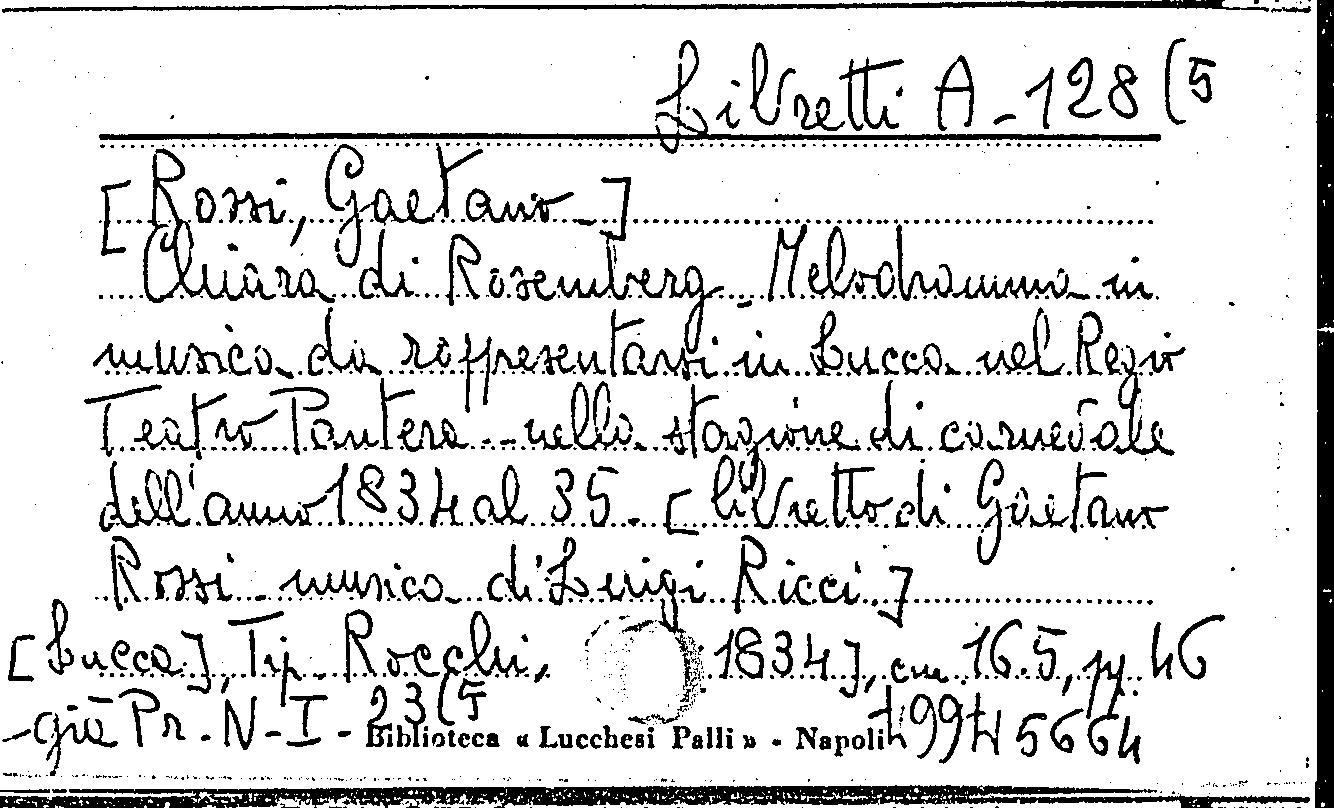 Libretti A-128(5
[Rossi, Gaetano-]
Chiara di Rosemberg_Melodramma in
musica da rappresentarsi in Lucca nel Regio
Teatro Pantera..nella stagione di carnevale
dell'anno 1834 al 35. [libretto di Gaetano
Rossi-musica di Luigi Ricci]
[Lucca], Tip. Rocchi, 1834], cm 16.5, pp. 46
-già Pr. N-I-23(5
Biblioteca « Lucchesi Palli » - Napoli